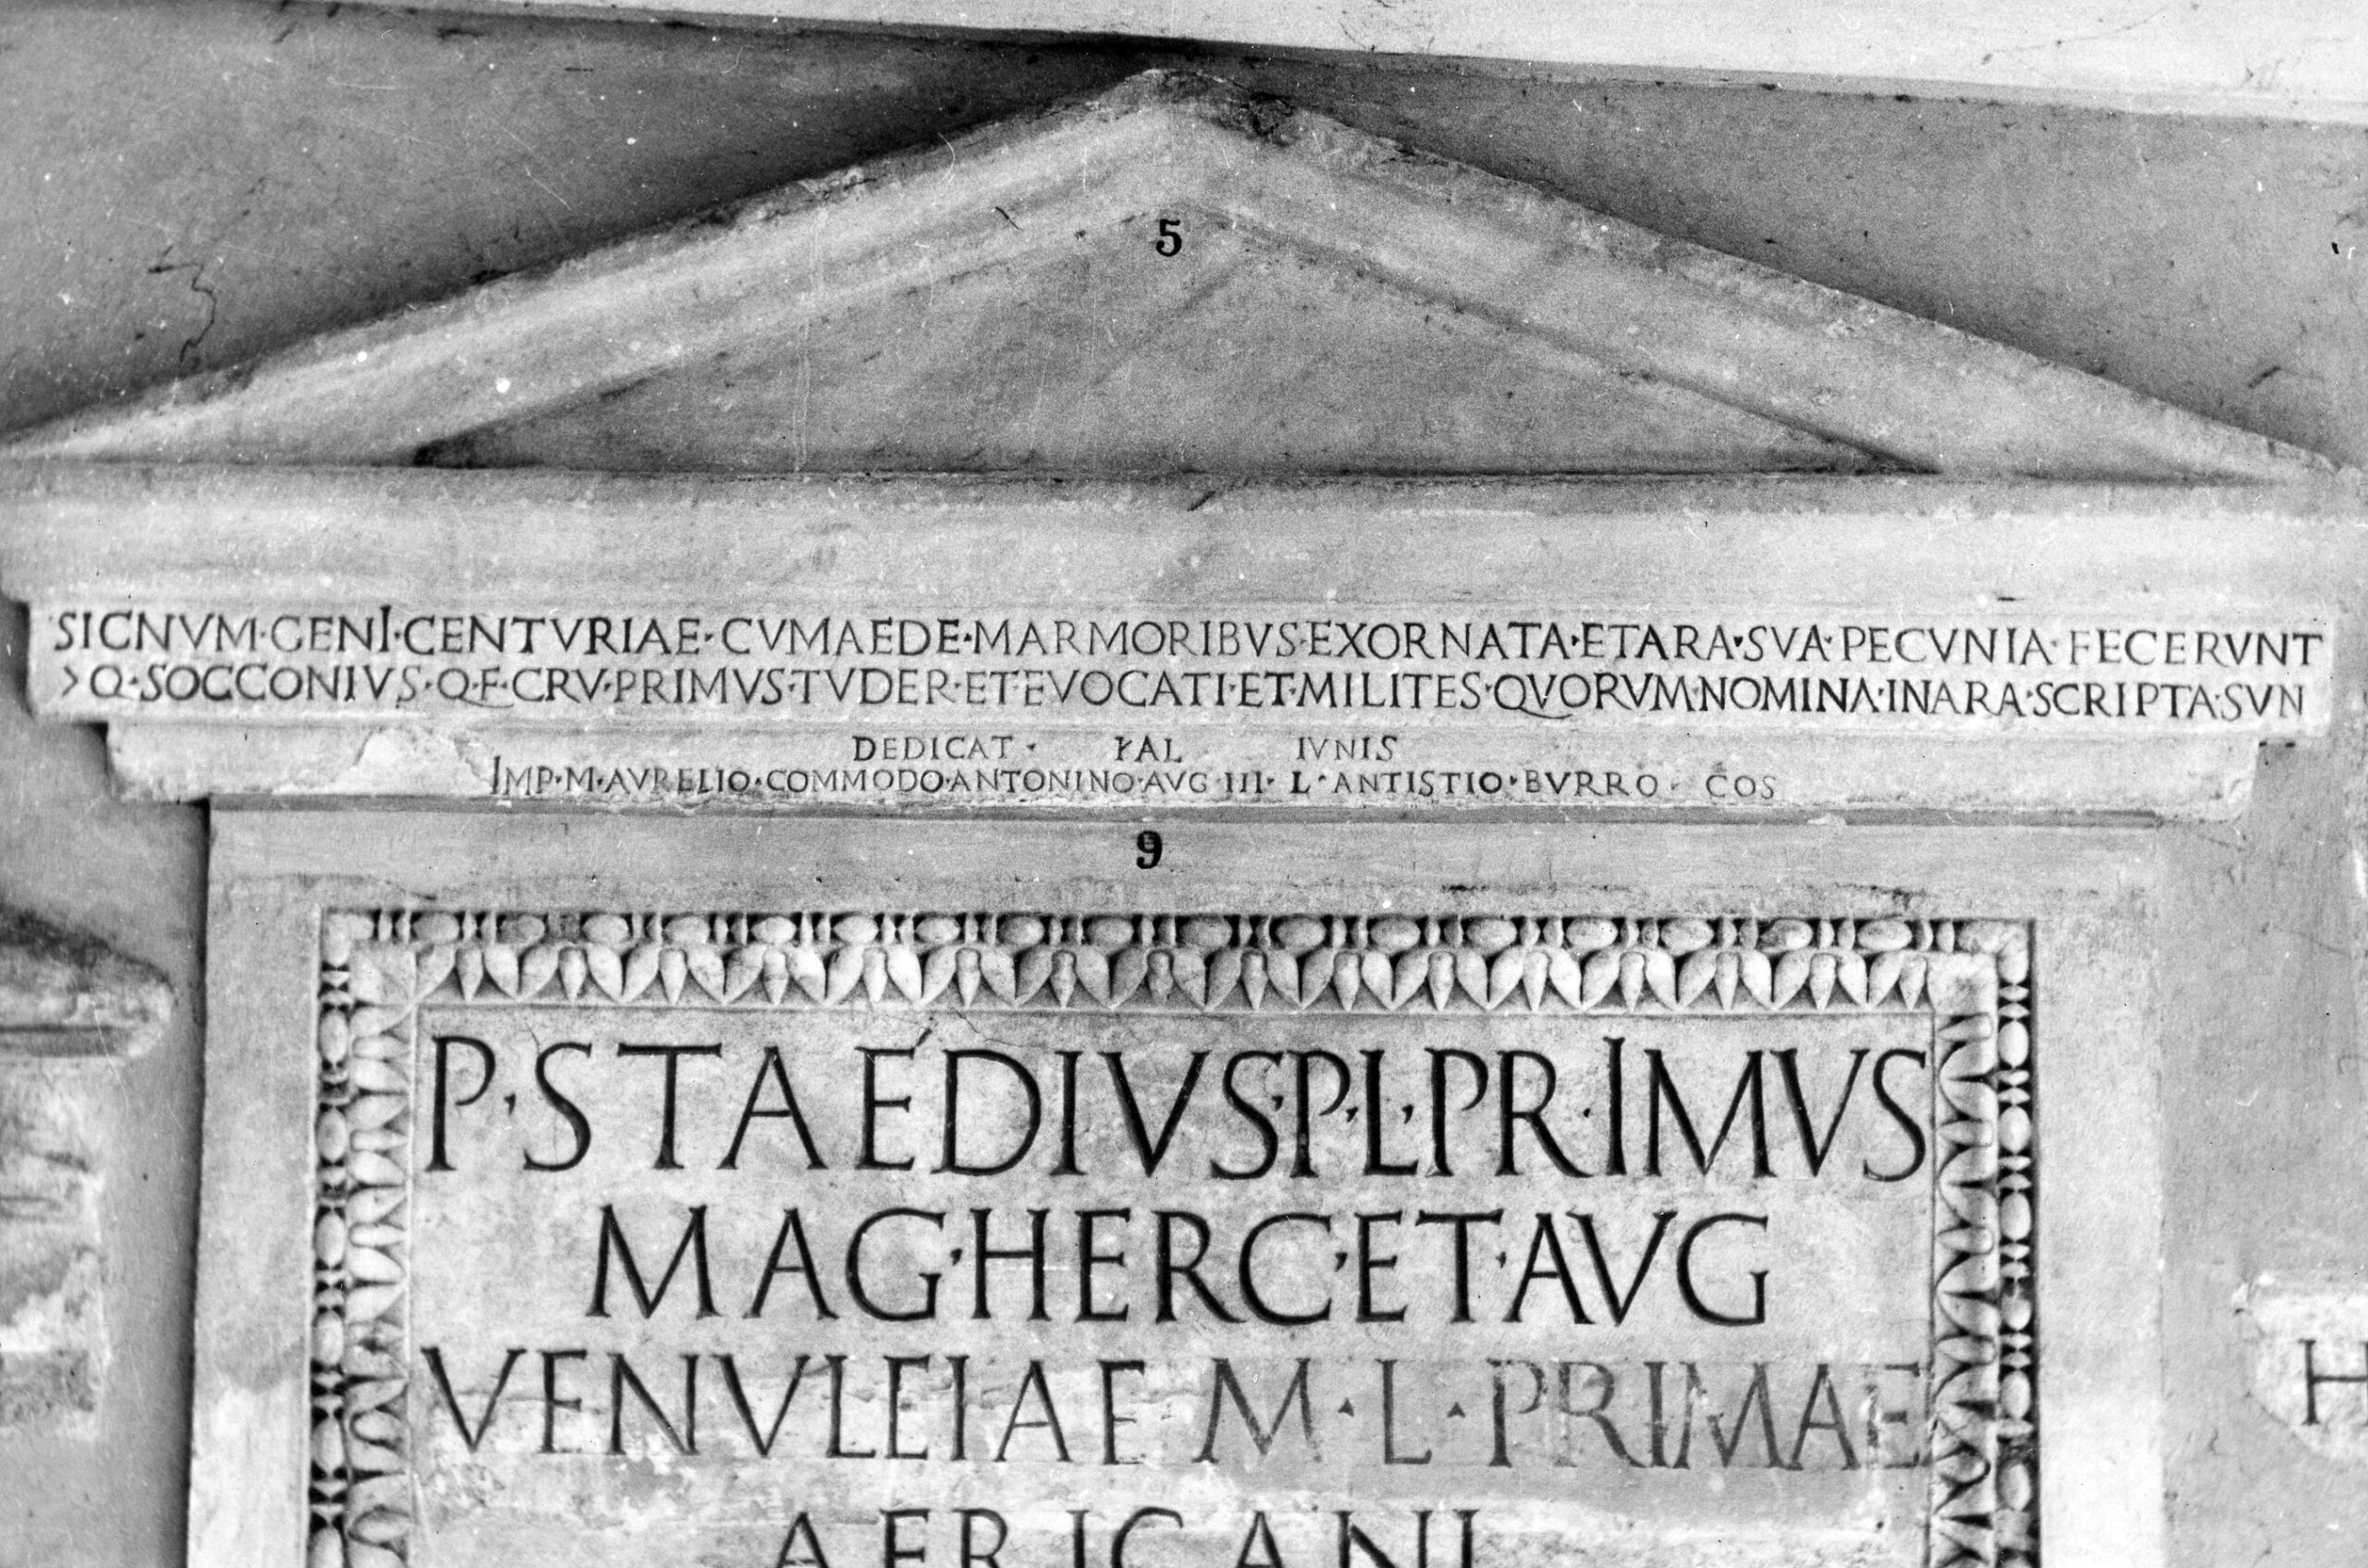 5
SIGNVM·GENI·CENTVRIAE·CVMAEDE·MARMORIBVS·EXORNATA·ETARA·SVA·PECVNIA·FECERVNT
>Q·SOCCONIVS·Q·F·CRV·PRIMVS·TVDER·ET·EVOCATI·ET·MILITES·QVORVM·NOMINA·INARA·SCRIPTA·SVN
DEDICAT · KAL IVNIS
IMP·M·AVRELIO·COMMODO·ANTONINO·AVG III· L·ANTISTIO·BVRRO · COS
9
P·STAEDIVS·P·L·PR·IMVS
MAG·HERC·ET·AVG
VENVLEIAE M·L·PRIMAE
AFRICANI
H